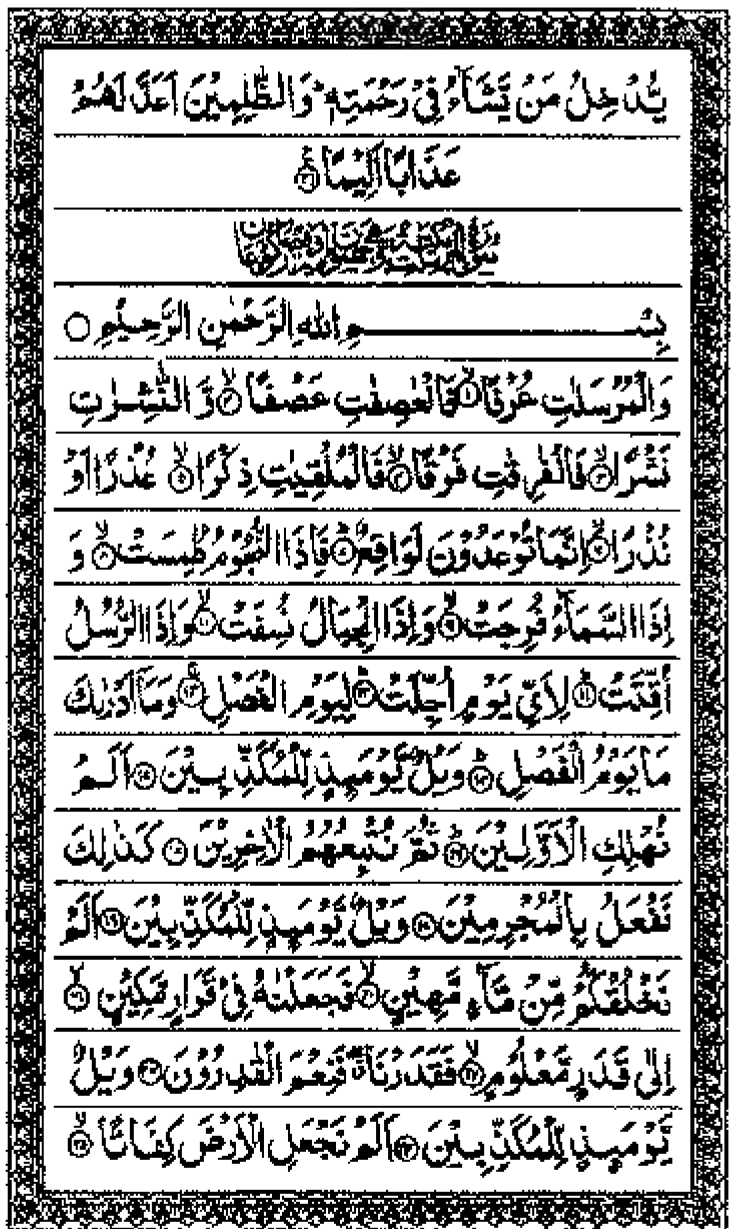 يُّدْخِلُ مَنْ يَّشَآءُ فِيْ رَحْمَتِهٖ ؕ وَالظّٰلِمِيْنَ اَعَدَّ لَهُمْ
عَذَابًا اَلِيْمًا ﴿۳۱﴾
بِسْمِ اللهِ الرَّحْمٰنِ الرَّحِيْمِ ○
وَالْمُرْسَلٰتِ عُرْفًا ﴿۱﴾ فَالْعٰصِفٰتِ عَصْفًا ﴿۲﴾ وَّالنّٰشِرٰتِ
نَشْرًا ﴿۳﴾ فَالْفٰرِقٰتِ فَرْقًا ﴿۴﴾ فَالْمُلْقِيٰتِ ذِكْرًا ﴿۵﴾ عُذْرًا اَوْ
نُذْرًا ﴿۶﴾ اِنَّمَا تُوْعَدُوْنَ لَوَاقِعٌ ﴿۷﴾ فَاِذَا النُّجُوْمُ طُمِسَتْ ﴿۸﴾ وَ
اِذَا السَّمَآءُ فُرِجَتْ ﴿۹﴾ وَاِذَا الْجِبَالُ نُسِفَتْ ﴿۱۰﴾ وَاِذَا الرُّسُلُ
اُقِّتَتْ ﴿۱۱﴾ لِاَيِّ يَوْمٍ اُجِّلَتْ ﴿۱۲﴾ لِيَوْمِ الْفَصْلِ ﴿۱۳﴾ وَمَاۤ اَدْرٰىكَ
مَا يَوْمُ الْفَصْلِ ﴿۱۴﴾ وَيْلٌ يَّوْمَىِٕذٍ لِّلْمُكَذِّبِيْنَ ﴿۱۵﴾ اَلَمْ
نُهْلِكِ الْاَوَّلِيْنَ ﴿۱۶﴾ ثُمَّ نُتْبِعُهُمُ الْاٰخِرِيْنَ ﴿۱۷﴾ كَذٰلِكَ
نَفْعَلُ بِالْمُجْرِمِيْنَ ﴿۱۸﴾ وَيْلٌ يَّوْمَىِٕذٍ لِّلْمُكَذِّبِيْنَ ﴿۱۹﴾ اَلَمْ
نَخْلُقْكُّمْ مِّنْ مَّآءٍ مَّهِيْنٍ ﴿۲۰﴾ فَجَعَلْنٰهُ فِيْ قَرَارٍ مَّكِيْنٍ ﴿۲۱﴾
اِلٰى قَدَرٍ مَّعْلُوْمٍ ﴿۲۲﴾ فَقَدَرْنَا ۖ فَنِعْمَ الْقٰدِرُوْنَ ﴿۲۳﴾ وَيْلٌ
يَّوْمَىِٕذٍ لِّلْمُكَذِّبِيْنَ ﴿۲۴﴾ اَلَمْ نَجْعَلِ الْاَرْضَ كِفَاتًا ﴿۲۵﴾